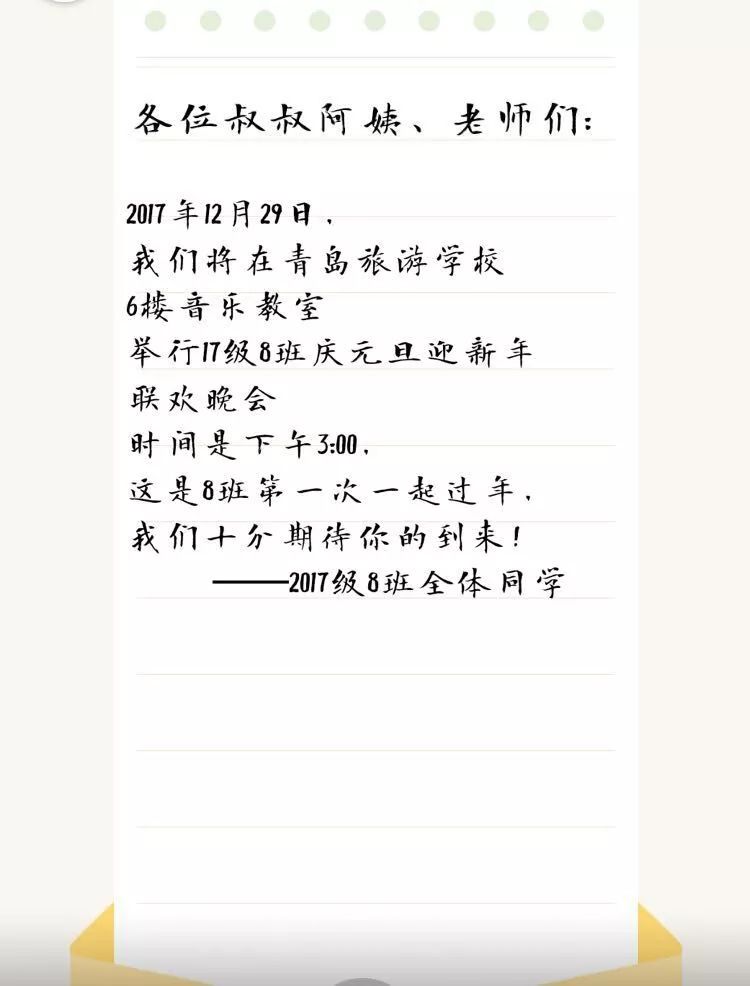 各位叔叔阿姨、老师们:
2017年12月29日，
我们将在青岛旅游学校
6楼音乐教室
举行17级8班庆元旦迎新年
联欢晚会
时间是下午3:00，
这是8班第一次一起过年，
我们十分期待你的到来!
——2017级8班全体同学